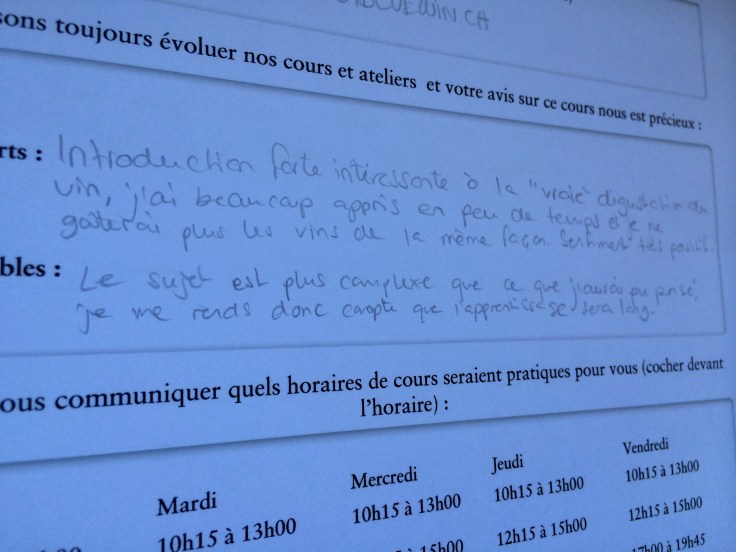 BLUEWIN.CH
sons toujours évoluer nos cours et ateliers et votre avis sur ce cours nous est précieux :
rts : Introduction forte intéressante à la "vraie" dégustation du
vin, j'ai beaucoup appris en peu de temps et je ne
goûterai plus les vins de la même façon. Sentiment très positif.
bles : Le sujet est plus complexe que ce que j'aurais pu pensé,
je me rends donc compte que l'apprentissage sera long.
ous communiquer quels horaires de cours seraient pratiques pour vous (cocher devant
l'horaire) :
Mardi Mercredi Jeudi Vendredi
10h15 à 13h00 10h15 à 13h00 10h15 à 13h00 10h15 à 13h00
15h00 12h15 à 15h00 12h15 à 15h00
17h00 à 19h45